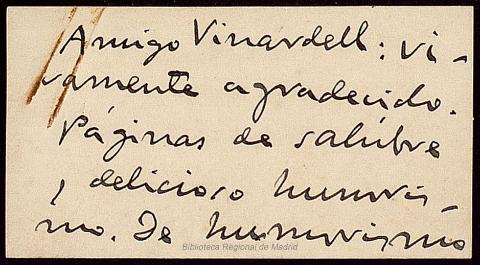 Amigo Vinardell: vi-
vamente agradecido.
Páginas de salubre
y delicioso humoris-
mo. De humorismo
Biblioteca Regional de Madrid